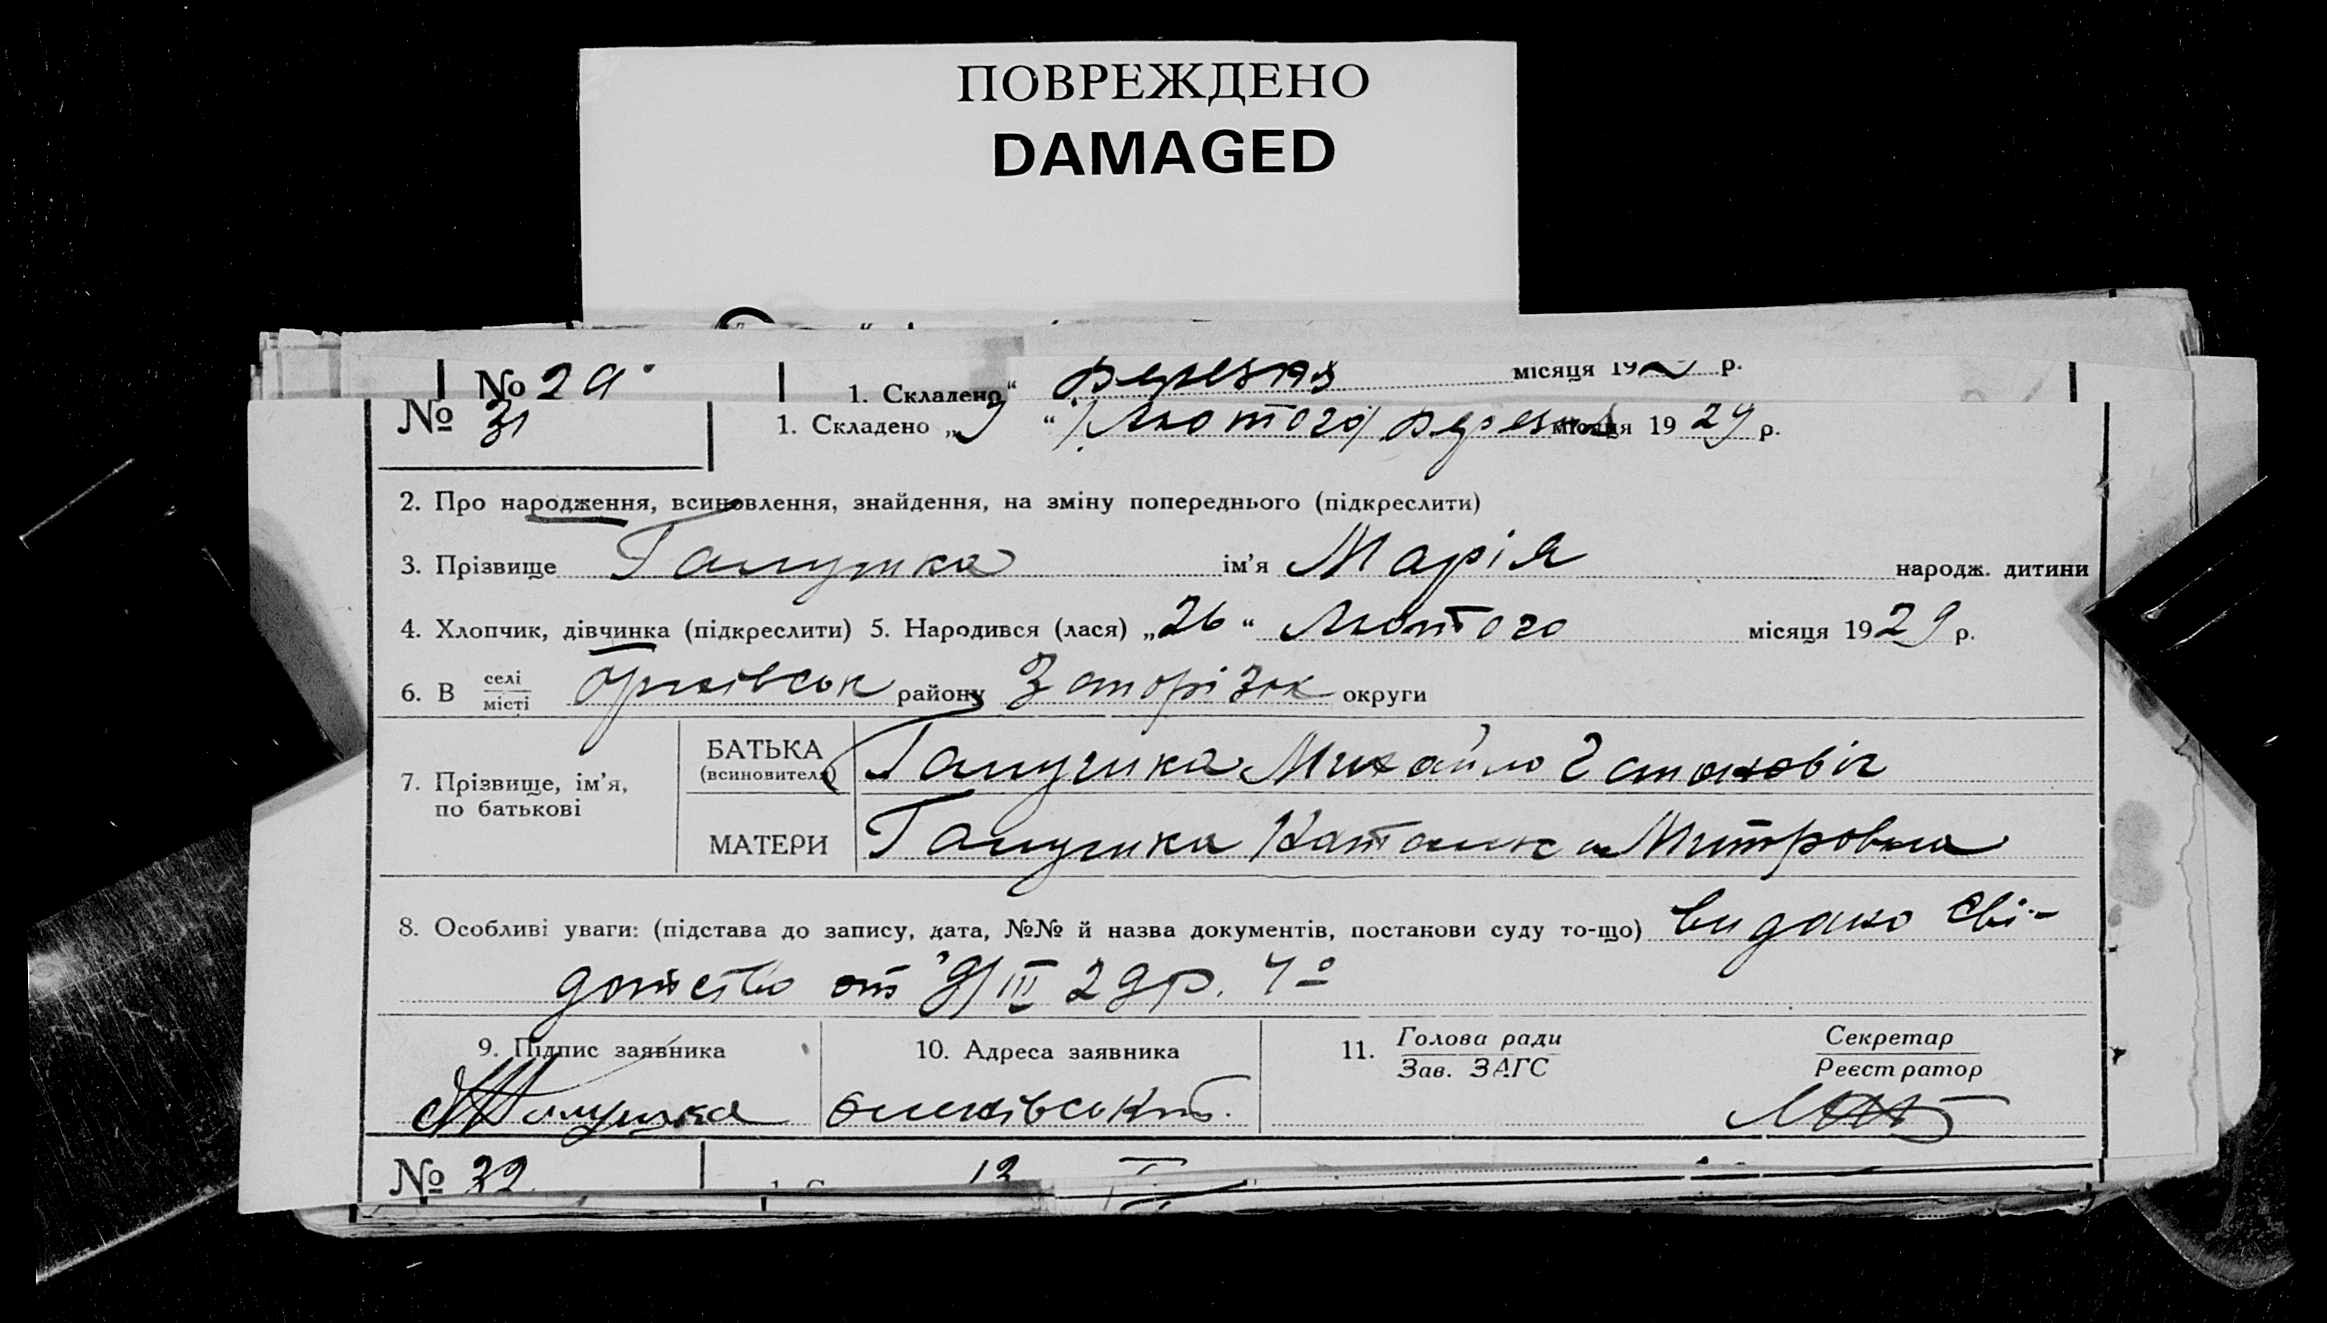 ПОВРЕЖДЕНО
DAMAGED
№ 29 1. Складено „ “ березня місяця 192 р.
№ 31 1. Складено „9 “ /Лютого/ березня місяця 1929 р.
2. Про народження, всиновлення, знайдення, на зміну попереднього (підкреслити)
3. Прізвище Галушка ім'я Марія народж. дитини
4. Хлопчик, дівчинка (підкреслити) 5. Народився (лася) „26“ Лютого місяця 1929 р.
6. В селі місті району Запорізьк округи
7. Прізвище, ім'я, по батькові
БАТЬКА (всиновителя) Галушка Михайло
МАТЕРИ Галушка Митровна
8. Особливі уваги: (підстава до запису, дата, №№ й назва документів, постанови суду то-що) видано сві-
доцство от 9/III 29 р.
9. Підпис заявника 10. Адреса заявника 11. Голова ради Зав. ЗАГС Секретар Реєстратор
Галушка
№ 32 12